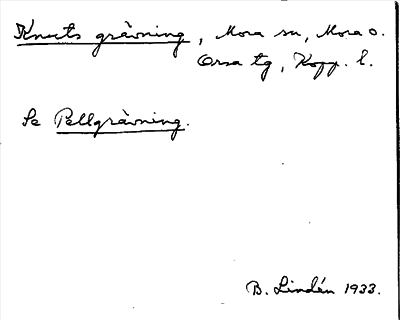 Knuts grävning, Mora sn, Mora o.
Orsa tg, Kopp. l.
Se Pellgrävning.
B. Lindén 1933.